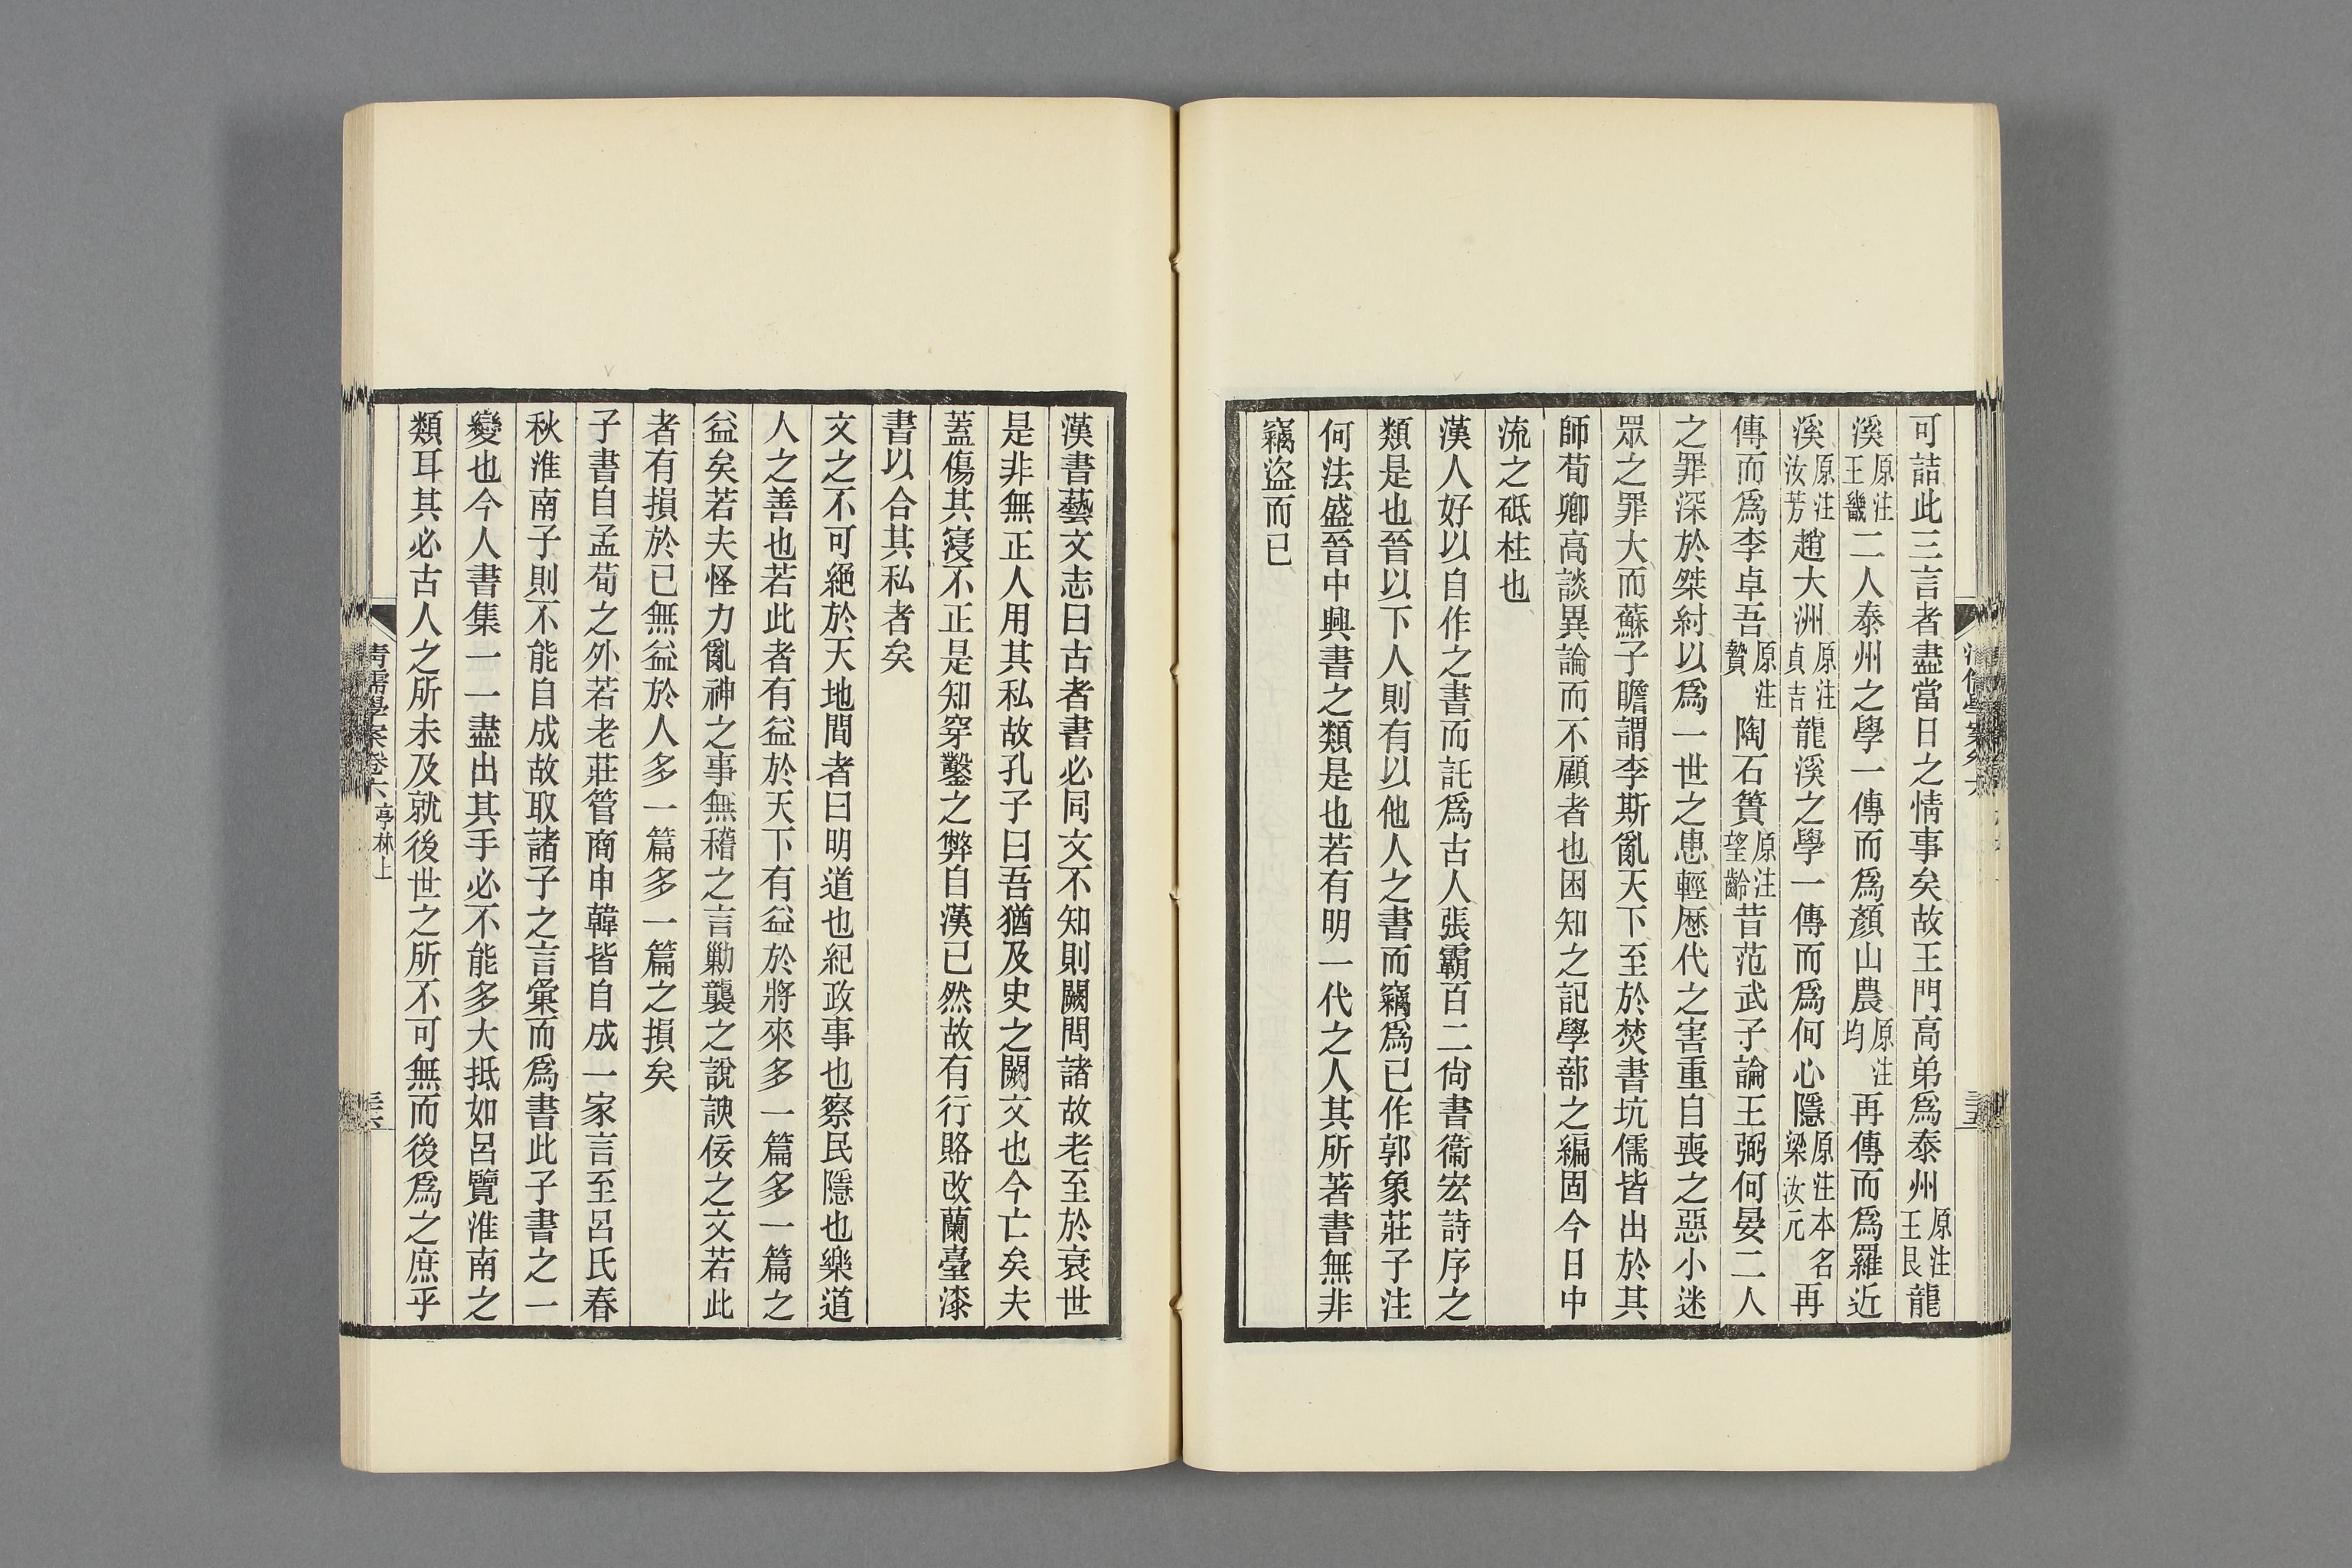 可詰此三言者盡當日之情事矣故王門高弟爲泰州原注王艮龍
溪原注王畿二人泰州之學一傳而爲顏山農原注均再傳而爲羅近
溪原注汝芳趙大洲原注貞吉龍溪之學一傳而爲何心隱原注本名梁汝元再
傳而爲李卓吾原注贄陶石簣原注望齡昔范武子論王弼何晏二人
之罪深於桀紂以爲一世之患輕歷代之害重自喪之惡小迷
眾之罪大而蘇子瞻謂李斯亂天下至於焚書坑儒皆出於其
師荀卿高談異論而不顧者也困知之記學蔀之編固今日中
流之砥柱也
漢人好以自作之書而託爲古人張霸百二尙書衞宏詩序之
類是也晉以下人則有以他人之書而竊爲已作郭象莊子注
何法盛晉中興書之類是也若有明一代之人其所著書無非
竊盜而已
漢書藝文志曰古者書必同文不知則闕問諸故老至於衰世
是非無正人用其私故孔子曰吾猶及史之闕文也今亡矣夫
蓋傷其寖不正是知穿鑿之弊自漢已然故有行賂改蘭臺漆
書以合其私者矣
文之不可絕於天地間者曰明道也紀政事也察民隱也樂道
人之善也若此者有益於天下有益於將來多一篇多一篇之
益矣若夫怪力亂神之事無稽之言勦襲之說諛佞之文若此
者有損於已無益於人多一篇多一篇之損矣
子書自孟荀之外若老莊管商申韓皆自成一家言至呂氏春
秋淮南子則不能自成故取諸子之言彙而爲書此子書之一
變也今人書集一一盡出其手必不能多大抵如呂覽淮南之
類耳其必古人之所未及就後世之所不可無而後爲之庶乎
清儒學案卷六 亭林上 三六